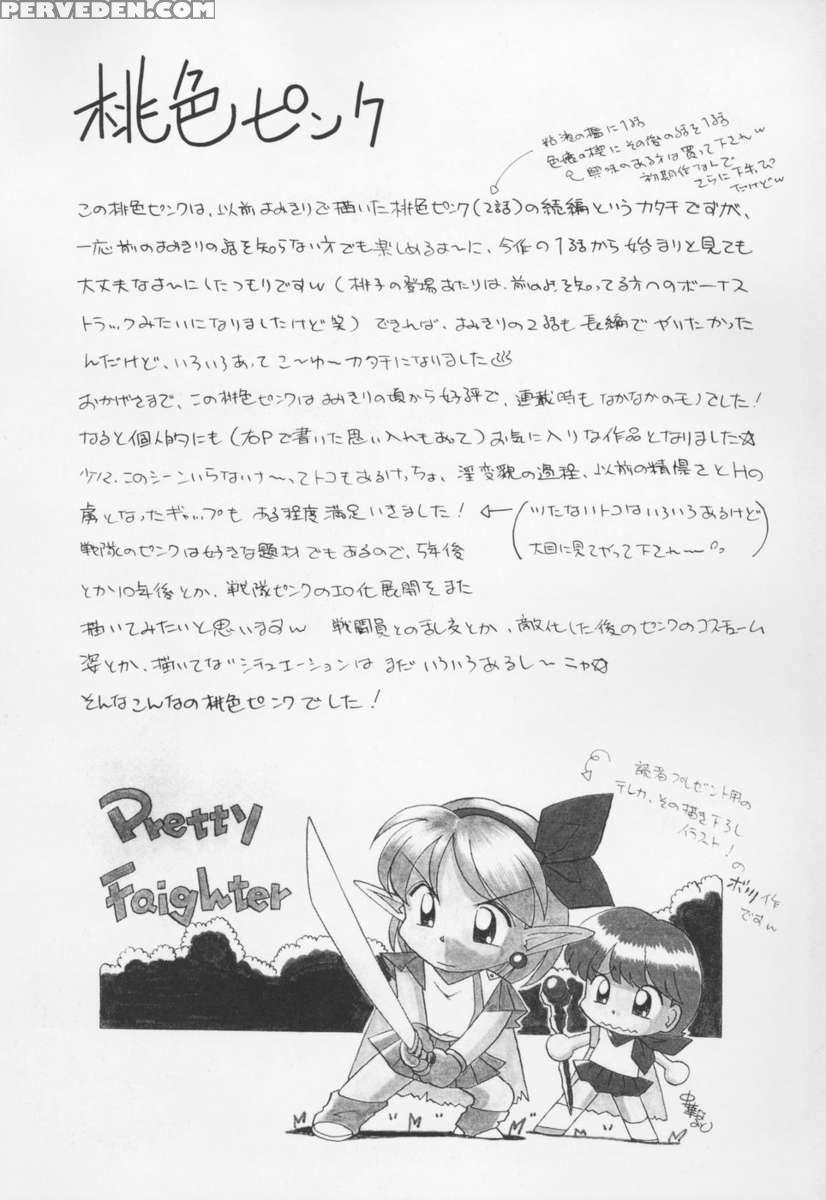 PERVEDEN.COM
桃色ピンク
粘液の檻に1話
色療の楔にその後の話を1話
興味のある方は買って下さいw
初期作なんで
さらに下手っぴ
だけどw
この桃色ピンクは、以前よみきりで描いた桃色ピンク(2話)の続編というカタチですが、
一応前のよみきりの話を知らない方でも楽しめるよ〜に、今作の1話から始まりと見ても
大丈夫なよ〜にしたつもりですw(桃子の登場あたりは、前のを知ってる方へのボーナス
トラックみたいになりましたけど笑)できれば、よみきりの2話も長編でやりたかった
んだけど、いろいろあってこ〜ゆ〜カタチになりました
おかげさまで、この桃色ピンクはよみきりの頃から好評で、連載時もなかなかのモノでした!
なると個人的にも(右Pで書いた思い入れもあって)お気に入りな作品となりました☆
少々、このシーンいらないナ〜ってトコもあるけっちょ、淫変貌の過程、以前の精悍さとHの
虜となったギャップもある程度満足いきました!
(ツたないトコはいろいろあるけど
大目に見てやって下さい〜)
戦隊のピンクは好きな題材でもあるので、5年後
とか10年後とか、戦隊ピンクのエロ化展開をまた
描いてみたいと思いますw 戦闘員との乱交とか、敵化した後のピンクのコスチューム
姿とか、描いてないシチュエーションはまだいろいろあるし〜ニャ☆
そんなこんなの桃色ピンクでした!
読者プレゼント用の
テレカ、その描き下ろし
イラスト!
の
ボツ作
ですw
Pretty
Faighter
中華なると